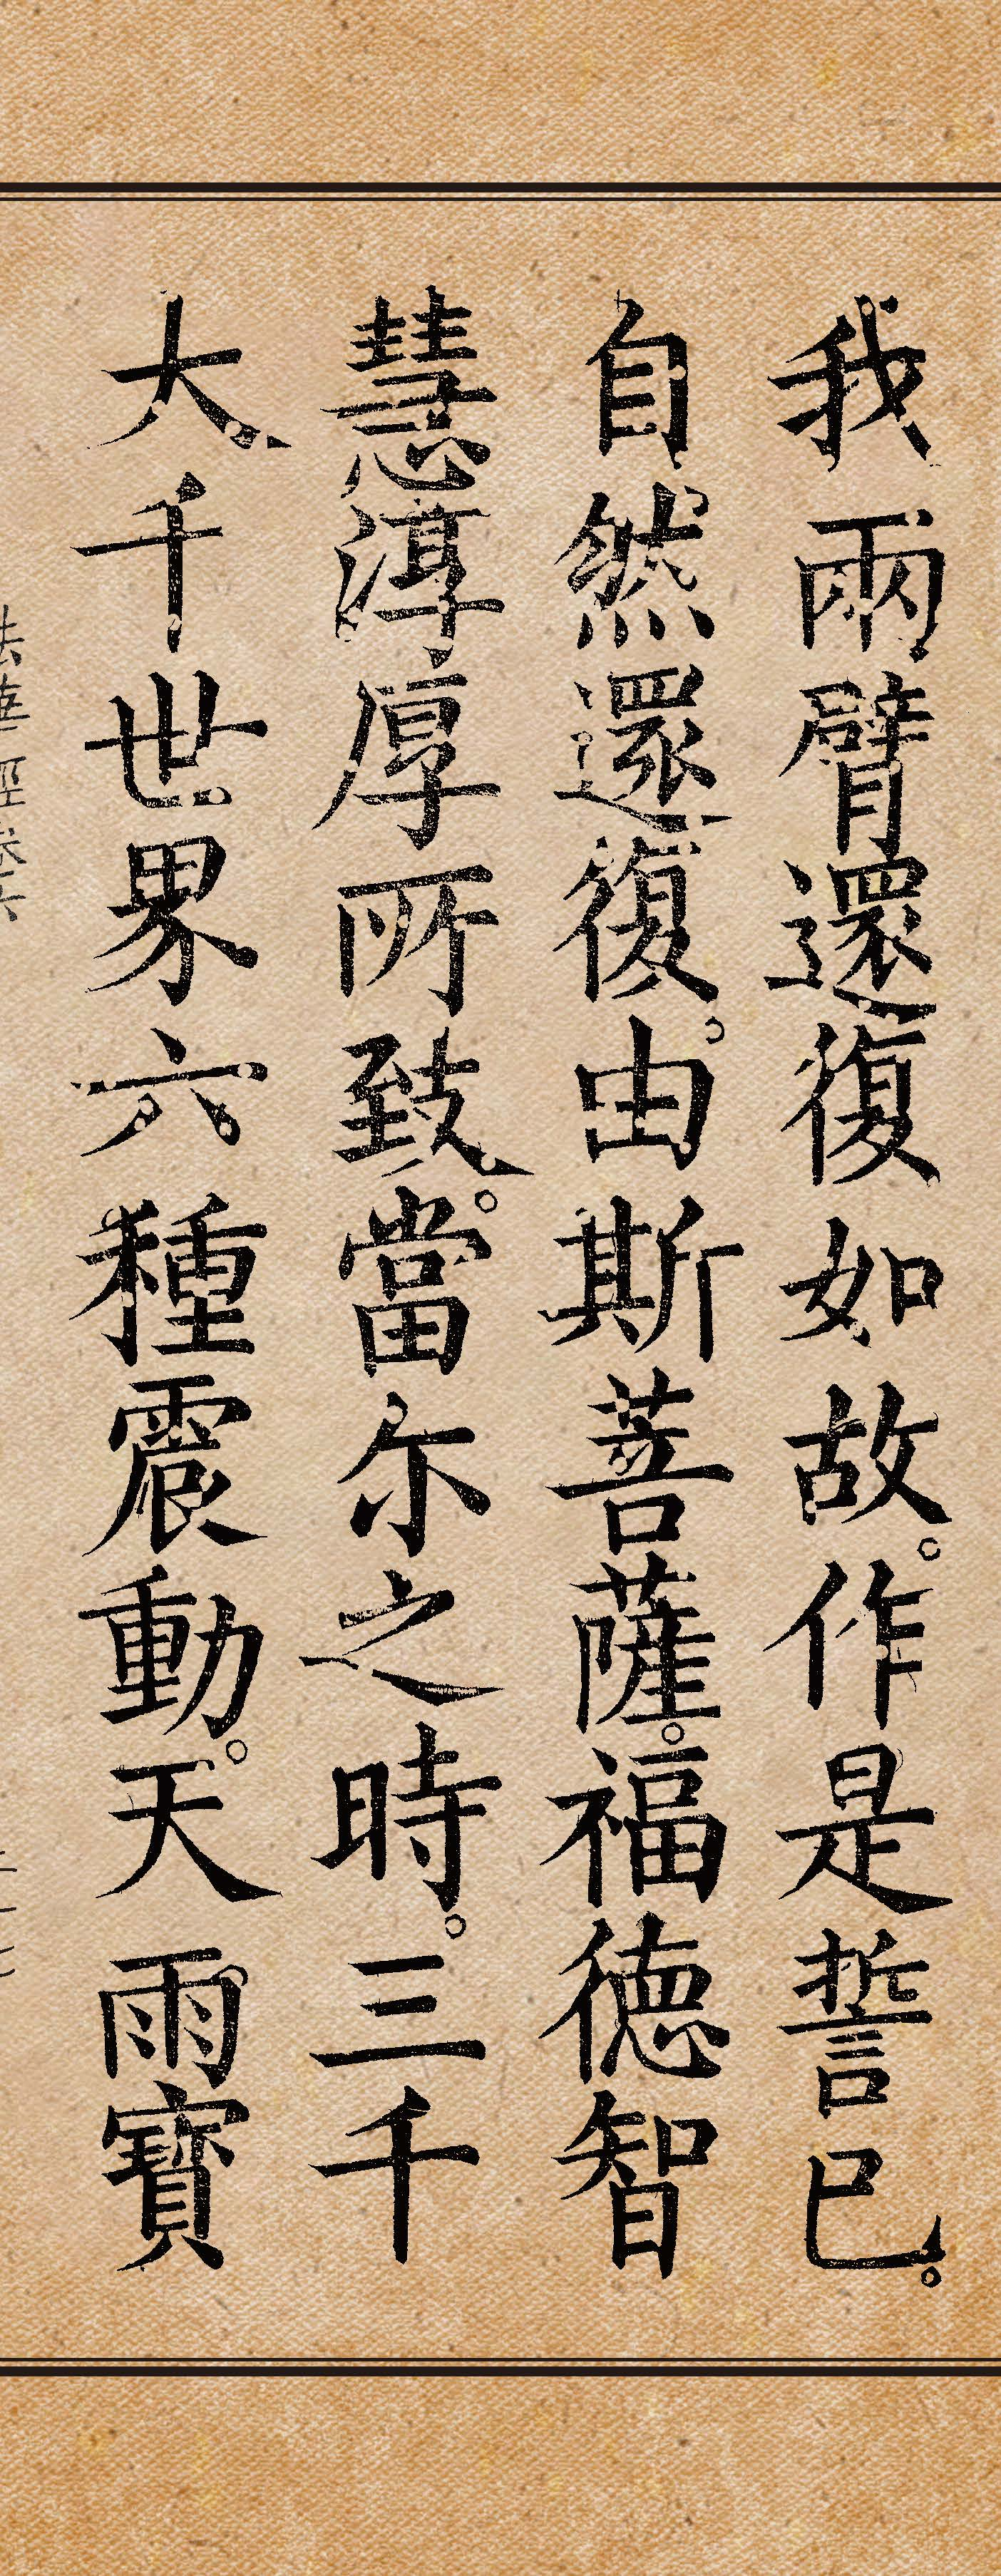 我兩臂還復如故。作是誓已。
自然還復。由斯菩薩。福德智
慧淳厚所致。當尔之時。三千
大千世界六種震動。天雨寶
法華經卷六